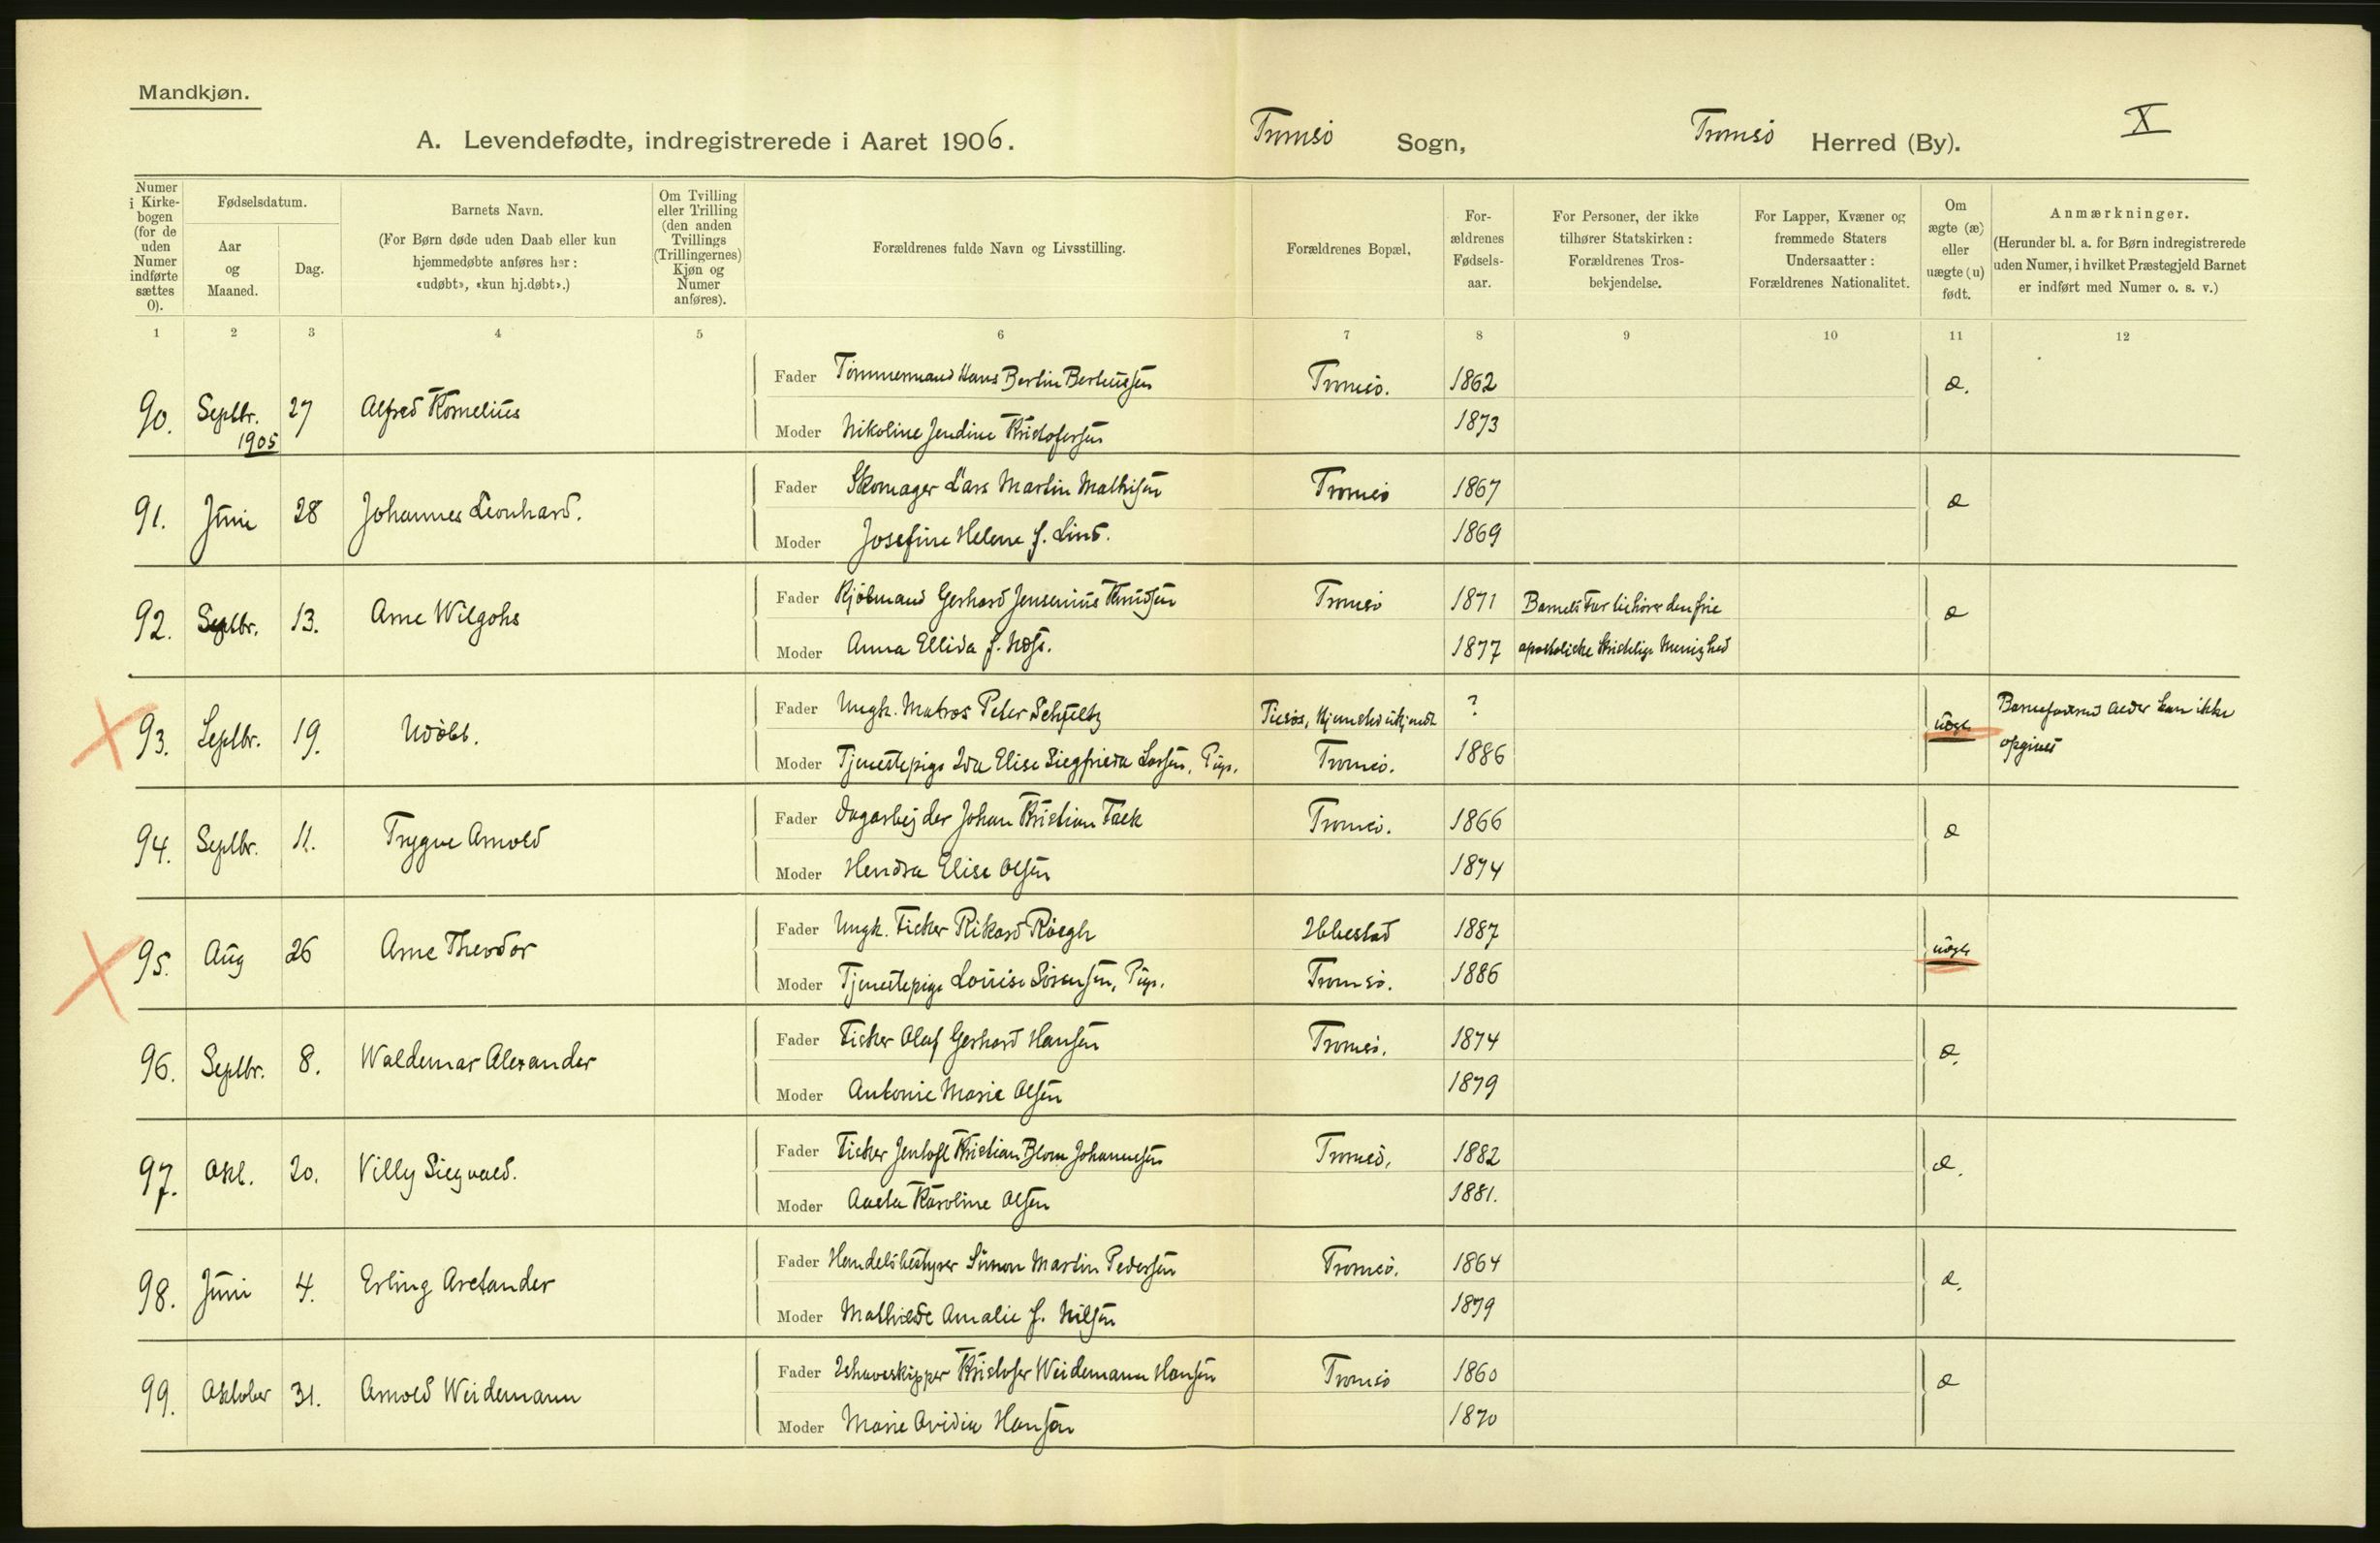 Mandkjøn.
A. Levendefødte, indregistrerede i Aaret 1906.
Tromsø Sogn, Tromsø Herred (By).
X
Numer i Kirkebogen (for de uden Numer indførte sættes 0).
Fødselsdatum.
Aar og Maaned.
Dag.
Barnets Navn.
(For Børn døde uden Daab eller kun hjemmedøbte anføres her: «udøbt», «kun hj.døbt».)
Om Tvilling eller Trilling (den anden Tvillings (Trillingernes) Kjøn og Numer anføres).
Forældrenes fulde Navn og Livsstilling.
Forældrenes Bopæl,
For-ældrenes Fødsels-aar.
For Personer, der ikke tilhører Statskirken: Forældrenes Tros-bekjendelse.
For Lapper, Kvæner og fremmede Staters Undersaatter: Forældrenes Nationalitet.
Om ægte (æ) eller uægte (u) født.
Anmærkninger.
(Herunder bl. a. for Børn indregistrerede uden Numer, i hvilket Præstegjeld Barnet er indført med Numer o. s. v.)
1 2 3 4 5 6 7 8 9 10 11 12
90. Septbr. 1905 27 Alfred Kornelius
Fader Tømmermand Hans Bertin Berteussen Tromsø. 1862 æ.
Moder Nikoline Jendine Kristofersen 1873
91. Juni 28 Johannes Leonhard.
Fader Skomager Lars Martin Mathisen Tromsø 1867 æ
Moder Josefine Helene f. Lind. 1869
92. Septbr. 13. Arne Wilgohs
Fader Kjøbmand Gerhard Jensenius Knudsen Tromsø 1871 Barnets Far tilhører den frie æ
Moder Anna Ellida f. Næss. 1877 apostoliske kristelige Menighed
93. Septbr. 19. Udøbt.
Fader Ungk. Matros Peter Schjeltz ? uægte Barnefaderens Alder kan ikke
Moder Tjenestepige Ida Elise Siegfrida Larsen, Pige. Tromsø. 1886 opgives
94. Septbr. 11. Trygve Arnold
Fader Dagarbejder Johan Kristian Falk Tromsø. 1866 æ
Moder Hendra Elise Olsen 1874
95. Aug 26 Arne Theodor
Fader Ungk. Fisker Rikard Röegh Ibbestad 1887 uægte
Moder Tjenestepige Louise Sørensen, Pige. Tromsø. 1886
96. Septbr. 8. Waldemar Alexander
Fader Fisker Olaf Gerhard Hansen Tromsø. 1874 æ.
Moder Antonie Marie Olsen 1879
97. Okt. 20. Villy Siegvald.
Fader Fisker Jentoft Kristian Blom Johannesen Tromsø. 1882 æ.
Moder Aasta Karoline Olsen 1881.
98. Juni 4. Erling Aretander
Fader Handelsbestyrer Simon Martin Pedersen Tromsø. 1864 æ.
Moder Mathilde Amalie f. Nilsen 1879
99. Oktober 31. Arnold Weidemann
Fader Ishavsskipper Kristofer Weidemann Hansen Tromsø 1860 æ
Moder Marie Ovidia Hansen 1870